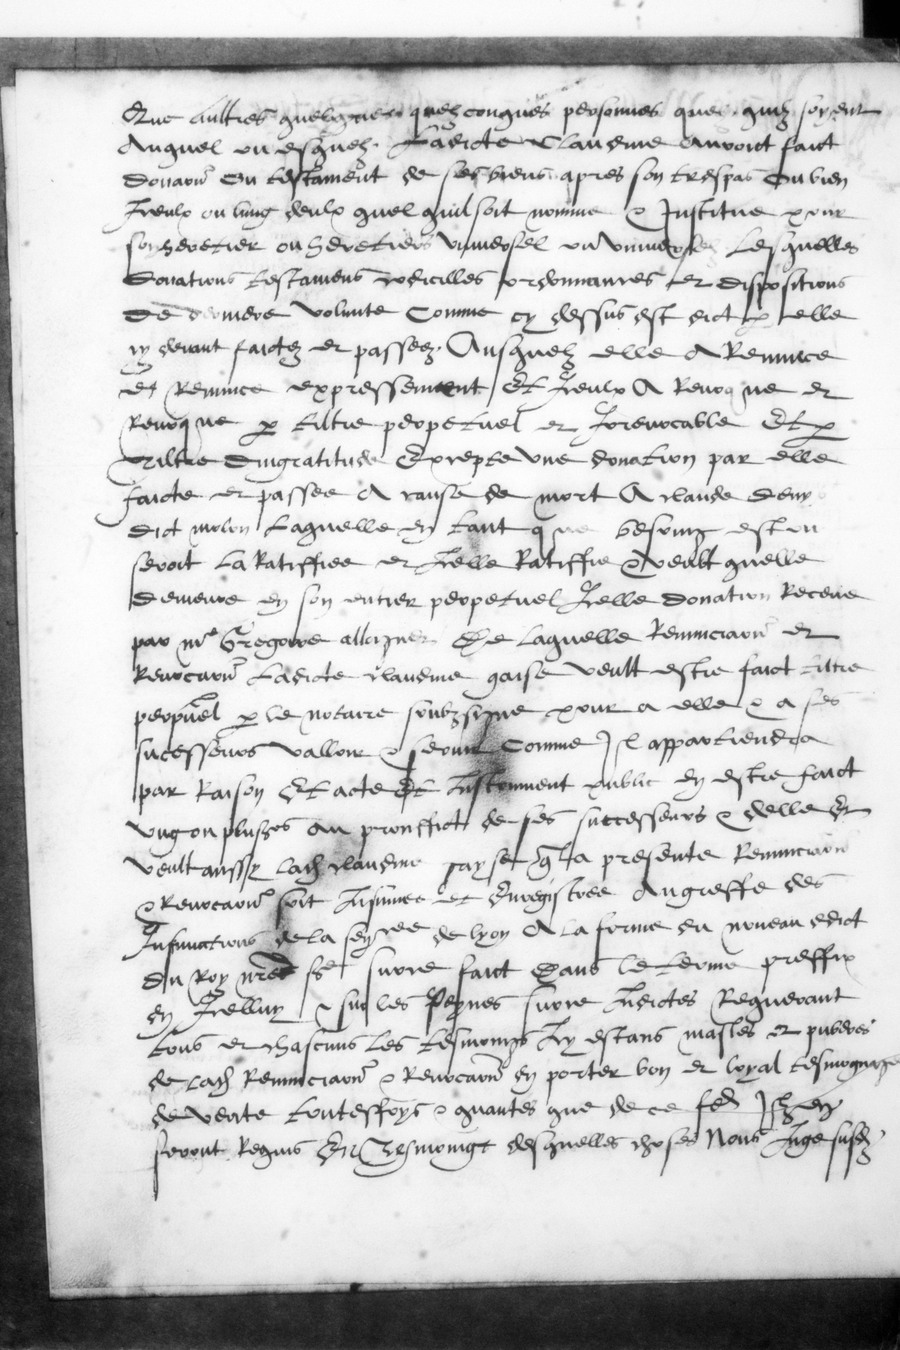 Que aultres quelzques quelzconques personnes quez quilz soyent
Auquel ou esquelz Ladicte Claudine auroit faict
donaon ou testament de ses biens apres son trespas ou bien
Iceulx ou lung deulx quel quil soit nomme & Institue pour
son heretier ou heretiers universel ou universelz Lesquelles
donations testamens codicilles ordonnances et dispositions
de derniere volunte Comme cy dessus est dict p elle
cy devant faictez et passeez Ausquelz elle A Renunce
et Renunce expressement Et Iceulx A Revoque et
Revoque p tiltre perpetuel et Irrevocable Et p
viltre dingratitude Excepte une donation par elle
faicte et passee A cause de mort A claude deny
dict molon Laquelle en tant que besoing est ou
seroit La Ratiffiee et Icelle Ratiffie & veult quelle
demeure en son entier perpetuel Icelle donation Receue
par me Gregoire De laquelle Renunciaon et
Revocaon Ladicte claudine veult estre faict tiltre
perpuel p le notaire soubzsigne pour a elle & a ses
successeurs valloir & servir Comme Il appartiendra
par Raison Et acte Et Instrument public en estre faict
ung ou plusrs au prouffict de ses successeurs & delle Et
veult aussy ladt claudine q la presente Renunciaon
& Revocaon soit Insinuee et Enregistree Au greffe des
Insinuations de la senscee de lyon A la forme du nouveau edict
du Roy nre sre surce faict Dans le terme preffix
en Icelluy & sur les Peynes surce Indictes Requerant
tous et chascuns les tesmoings Icy estans masles et puberes
de ladt Renunciaon & Revocaon en porter bon et loyal tesmognage
de verite Touteffoys & quantes que de ce Ilz en
seront Requis En Tesmoingt desquelles choses Nous Juge susd